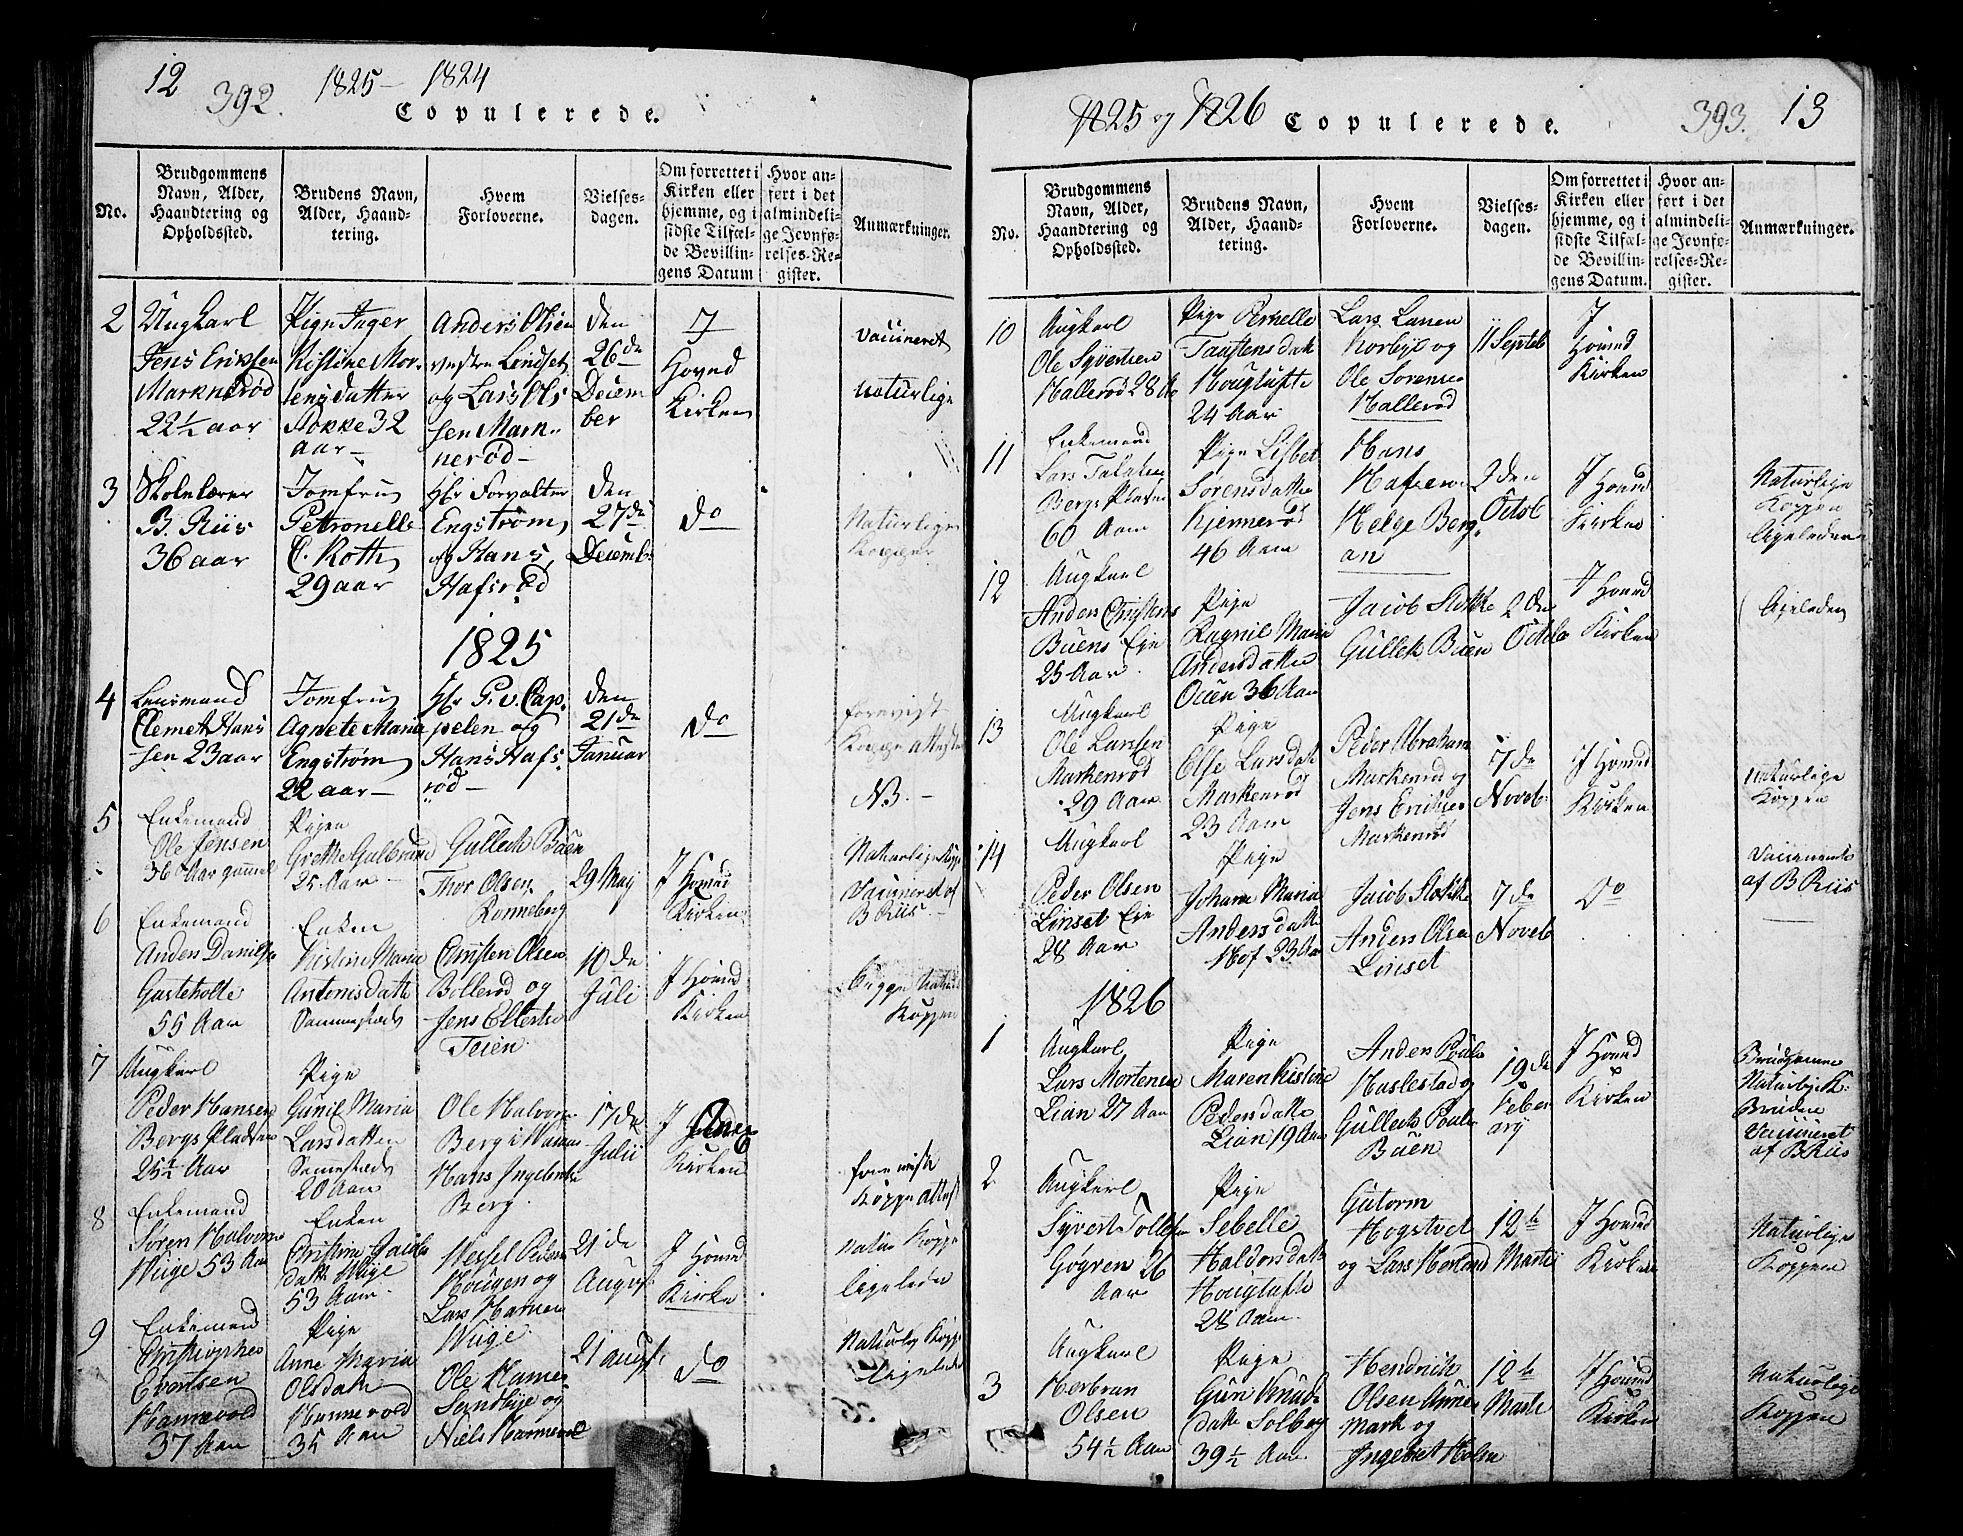 12
392.
1825 - 1824
Copulerede.
No.
Brudgommens
Navn, Alder,
Haandtering og
Opholdssted.
Brudens Navn,
Alder, Haand-
tering.
Hvem
Forloverne.
Vielses-
dagen.
Om forrettet i
Kirken eller
hjemme, og i
sidste Tilfæl-
de Bevillin-
gens Datum
Hvor an-
ført i det
almindeli-
ge Jevnfø-
relses-Re-
gister.
Anmærkninger.
2
Ungkarl
Jens Eriksen
Marknerød
22½ aar
Pige Inger
Kistine Mor-
tensdatter
Aokke 32
aar
Anders Olsen
vestre Lindset
og Lars Ols
sen Mark-
nerød
den
26de
Decem
ber
I
Hoved
Kirken
vaccineret
naturlige
3
Skolelærer
B. Riis
36 aar
Jomfru
Petronelle
C. Roth
29 aar
Hr Forvalter
Engstrøm
og Hans
Hafsrød
den
27de
Decemb:
do
Naturlige
Kopper
1825
4
Lensmand
Clemet Hans
sen 23 aar
Jomfru
Agnete Maria
Engstrøm
22 aar
Hr P. v. Cap-
pelen og
Hans Hafs
rød
den
21de
Januar
do
forevist
Koppe attest
NB.
5
Enkemand
Ole Jensen
36 Aar gammel
Pigen
Grethe Gulbrand
25 Aar
Gulleck Büen
Thor Olsen
Ronneberg
29 May
I Hovid
Kirken
Naturlige Kop
Vaccineret af
B Riis.
6
Enkemand
Anders Danielsen
Gusteholte
55 Aar
Enken
Kistine Marie
Antonisdatte
Sammesteds
Christen Olsen
Bollerød og
Jens Ellertse
Teien
10 de
Juli
I Hovid
Kirken
Koppen
7
Ungkarl
Peder Hansen
Bergs Pladsen
25½ Aar
Pige
Gunil Maria
Larsdatter
Sammesteds
20 Aar
Ole Halvorse
Berg i
Hans Ingebretse
Berg.
17 de
Julii
I
Kirken
forevist
Koppe attest
8
Enkemand
Søren Halvorse
Wiige 53 Aar
Enken
Christine Jacobs
datte Wiige
53 Aar
Wessel Peders
Hougen og
Lars Hansen
Wiige
21 de
August
I Hovid
Kirke
Natur Koppe
ligeleden
9
Enkemand
Christopher
Evertsen
Hannevold
37 Aar
Pige
Anne Maria
Olsdatte
Hannevold
35 Aar
Ole Hansen
Sandbye og
Niels Hannevol
21 August
do
Naturlig Kopp
Ligeleden
1825 og 1826
Copulerede.
393.
13
No.
Brudgommens
Navn, Alder,
Haandtering og
Opholdssted.
Brudens Navn,
Alder, Haand-
tering.
Hvem
Forloverne.
Vielses-
dagen.
Om forrettet i
Kirken eller
hjemme, og i
sidste Tilfæl-
de Bevillin-
gens Datum.
Hvor an-
ført i det
almindeli-
ge Jevnfø-
relses-Re-
gister.
Anmærkninger.
10
Ungkarl
Ole Syvertsen
Hallerød 28 Aar
Pige Pernelle
Taastensdatt
Hougtufte
24 Aar
Lars Larsen
Korbye og
Ole Sorense
Hallerød
11 Septeb
I
Hovid
Kirken
11
Enkemand
Lars
Bergs Pladsen
60 Aar
Pige Lisbet
Sørensdatte
Kjennerød
46 Aar
Hans
Hafsero
Helge Berg-
an
2 den
Octob
I Hovid
Kirken
Naturlige
Koppen
Ligeleden
12
Ungkarl
Anders Christens
Büens Eje
25 Aar
Pige
Ragnil Marie
Andersdatte
Ouen 36 Aar
Jacob Stokke
Gulleck Büen
2 den
Octob
I Hovid
Kirken
Ligeleden
13
Ungkarl
Ole Larssen
Markenrød
29 Aar
Pige
Else Larsdatt
Markenrød
23 Aar
Peder Abraham
Markenrød og
Jens Eriksen
Markenrød
7 de
Noveb
I Hovid
Kirken
Naturlige
Koppen
14
Ungkarl
Peder Olsen
Linset Eje
28 Aar
Pige
Johane Maria
Andersdatte
Hof 23 Aar
Jacob Stokke
Anders Olse
Linset
7 de
Noveb
Do
Vaccinerede
af B Riis
1826
1
Ungkarl
Lars Mortensen
Lian 27 Aar
Pige
Maren Kistine
Pedersdatte
Lian 19 Aar
Anders Povels
Haslestad og
Gulleck Povels
Büen
19 de
Feber
arij
I Hovid
Kirken
Brudgomme
Naturlig K:
Bruden
Vaccineret
af B Riis
2
Ungkarl
Syvert Tollefse
Gøgren 26
Aar
Pige
Sebelle
Haldorsdatte
Hougtufte
28 Aar
Gutorm
Hogstvet
og Lars Horland
12te
Marti
I Hovid
Kirken
Naturlige
Koppen
3
Ungkarl
Herbran
Olsen
54½ Aar
Pige
Guri Knuds
datte Solberg
39½ Aar
Hendrick
Olsen
mark og
Ingebret Holsn
12te
Marti
I Hovid
Kirken
Naturlige
Koppen